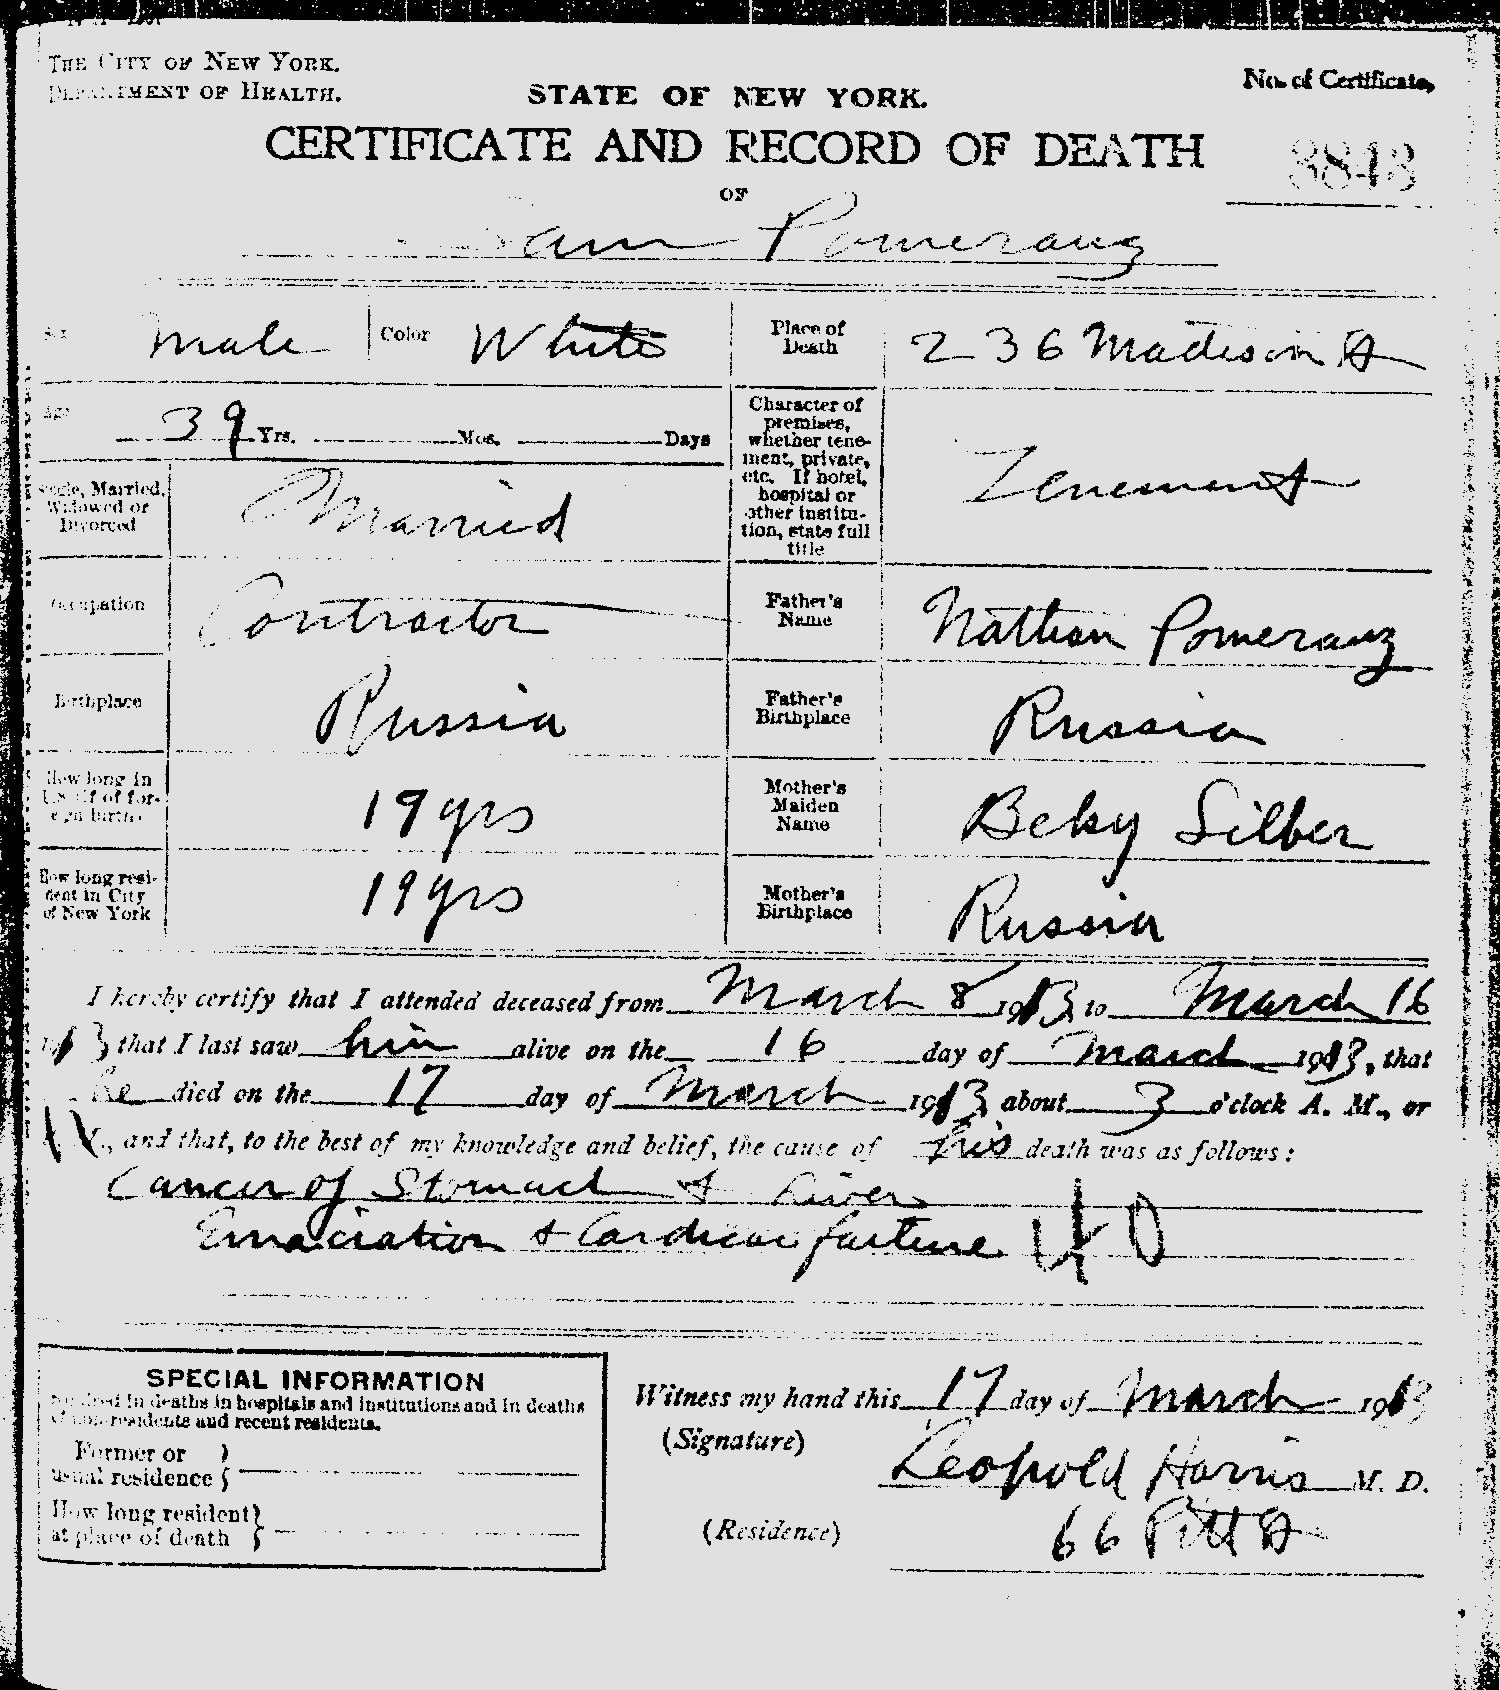 THE CITY OF NEW YORK.
DEPARTMENT OF HEALTH.
No. of Certificate,
STATE OF NEW YORK.
CERTIFICATE AND RECORD OF DEATH
8843
OF
Sam Pomeranz
Sex Male Color White
Place of Death 236 Madison St
Age 39 Yrs. Mos. Days
Character of premises, whether tenement, private, etc. If hotel, hospital or other institution, state full title Tenement
Single, Married, Widowed or Divorced Married
Occupation Contractor
Father's Name Nathan Pomeranz
Birthplace Russia
Father's Birthplace Russia
How long in U.S. if of foreign birth 19 yrs
Mother's Maiden Name Beky Silber
How long resident in City of New York 19 yrs
Mother's Birthplace Russia
I hereby certify that I attended deceased from March 8 1913 to March 16
1913 that I last saw him alive on the 16 day of March 1913, that
he died on the 17 day of March 1913 about 3 o'clock A. M., or
and that, to the best of my knowledge and belief, the cause of his death was as follows:
Cancer of Stomach & Liver
Emaciation & Cardiac failure 40
SPECIAL INFORMATION
required in deaths in hospitals and institutions and in deaths
of non-residents and recent residents.
Former or
usual residence
How long resident
at place of death
Witness my hand this 17 day of March 1913
(Signature) Leopold Harris M. D.
(Residence) 66 Pitt St